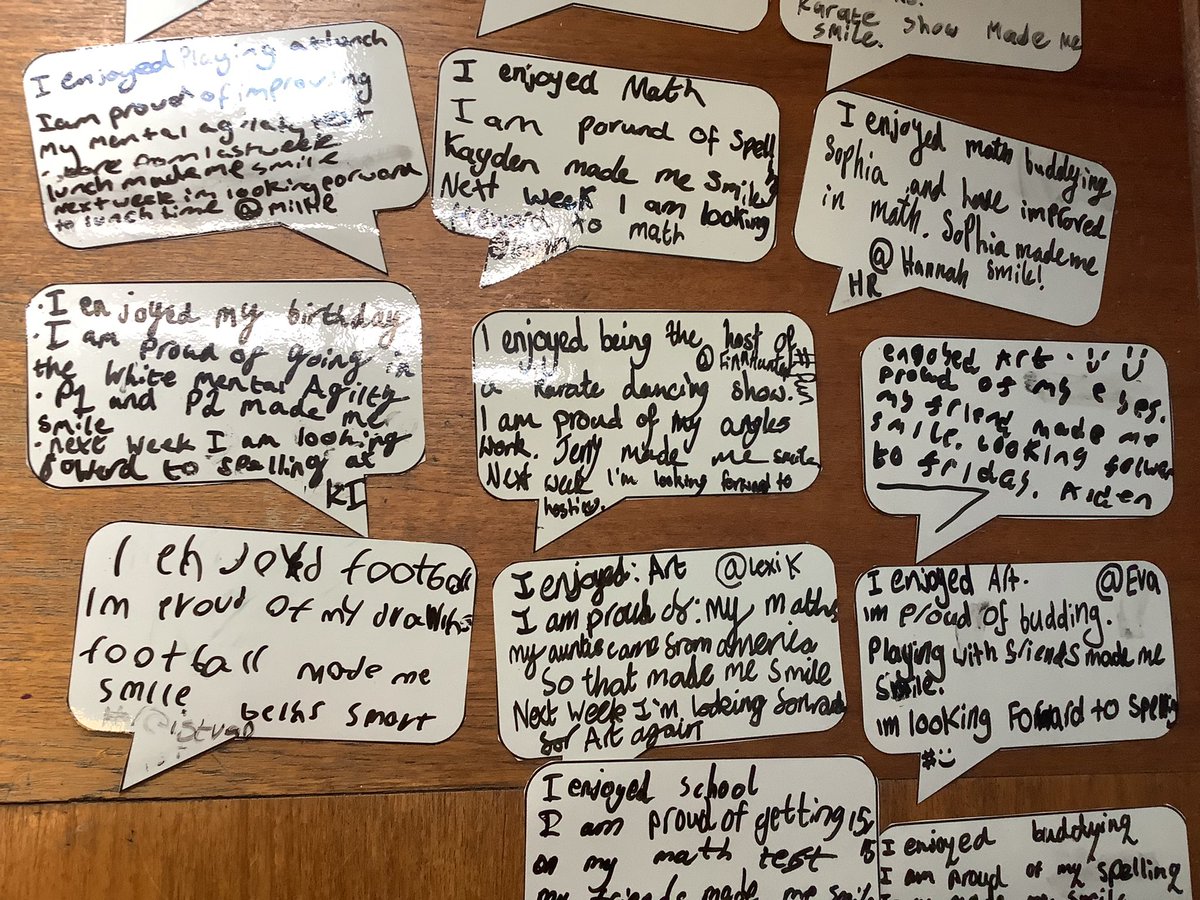 Karate Show Made Me
smile.
I enjoyed Playing at lunch
I am proud of improving
My mental agilaty test
from last week
lunch made me smile
next week im looking forward
to lunch time @
I enjoyed Math
I am porund of Spell
Kayden made me smile
Next week I am looking
to math
I enjoyed math buddying
Sophia and have improved
in math. Sophia made me
@Hannah smile!
HR
· I enjoyed my birthday
· I am proud of going in
the White Mental Agilty
· P1 and P2 made me
smile
· next week I am looking
foword to spelling at
KI
I enjoyed being the host of
@Finnhunter
a karate dancing show.
I am proud of my angles
work. Jerry made me smile
Next week I'm looking forward to
hosting.
engoyed Art.
Proud of my e
my friend made me
smile. Looking
to fridas. Aiden
I enjoyed football
Im proud of my drawings
football made me
smile
smart
I enjoyed: Art @Lexi K
I am proud of: my maths
my auntie came from america
So that made me smile
Next Week I'm looking forward
for Art again
I enjoyed Art. @Eva
im proud of budding.
Playing with friends made me
smile.
im looking Forward to spelling
#
I enjoyed school
I am proud of getting 15
on my math test 15
my friends made me smile
I enjoyed buddying
I am proud of my spelling
made me smile